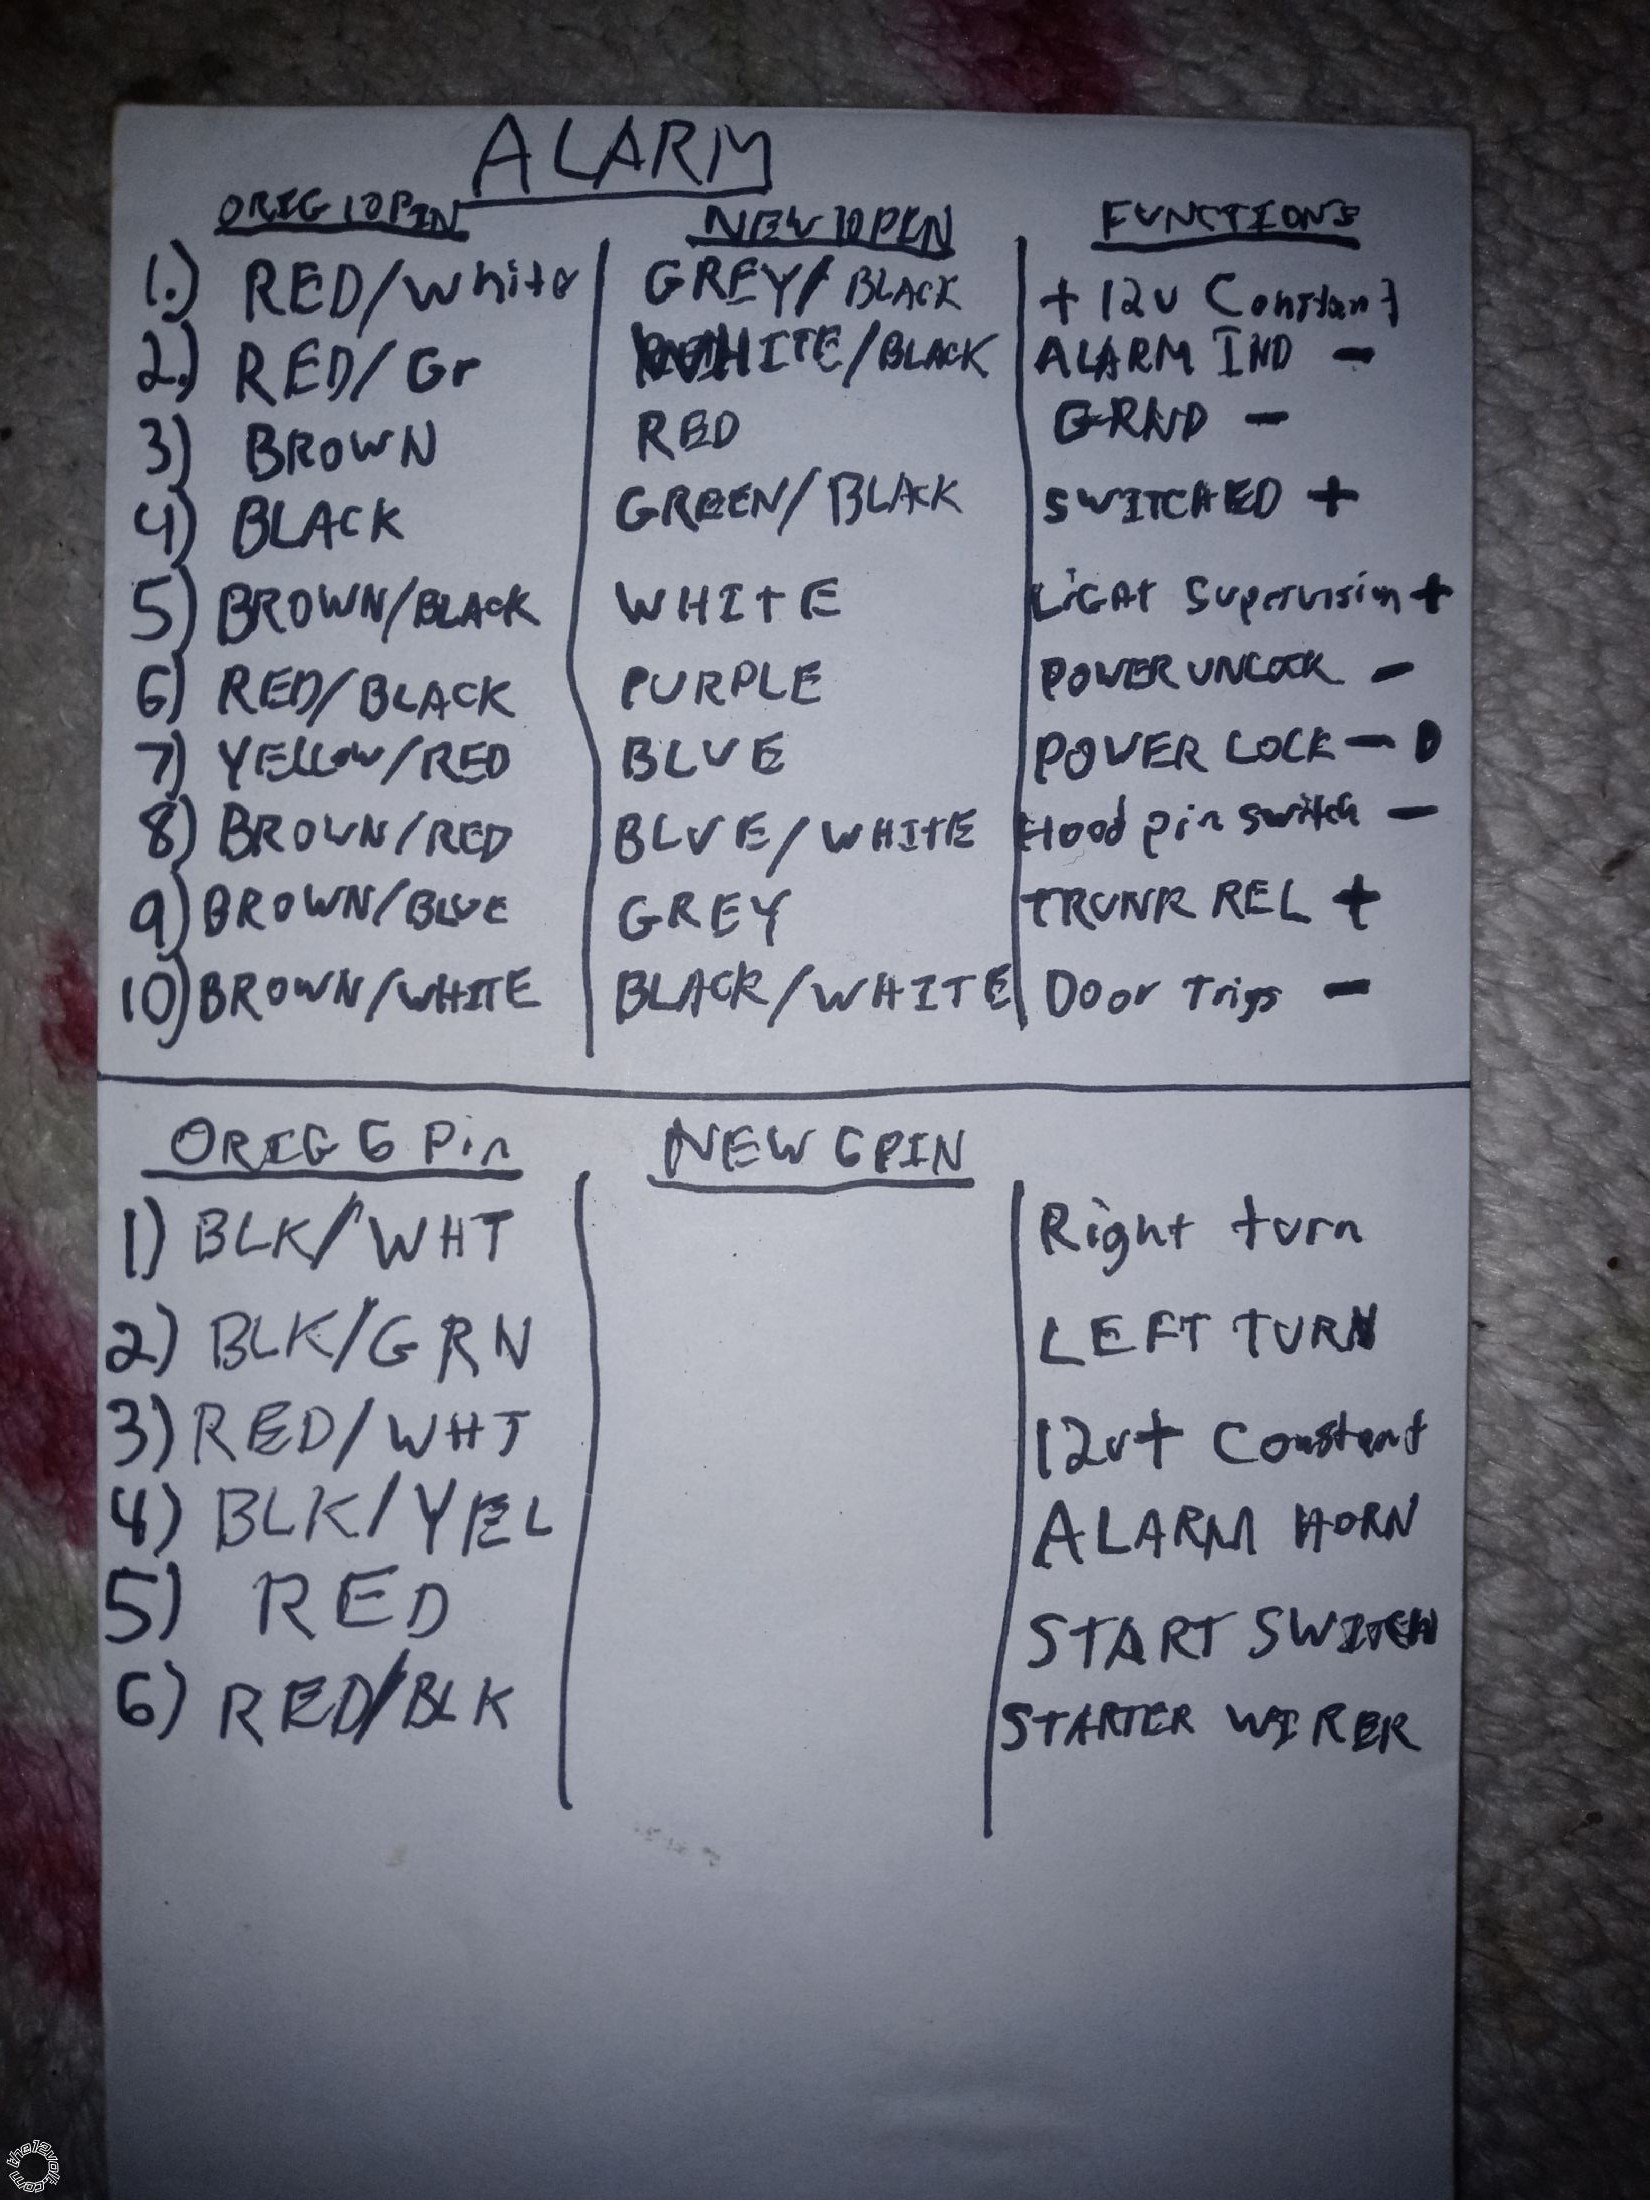 ALARM
ORIG 10 PIN NEW 10 PIN FUNCTIONS
1.) RED/White GREY/BLACK +12v Constant
2.) RED/Gr WHITE/BLACK ALARM IND -
3) BROWN RED GRND -
4) BLACK GREEN/BLACK SWITCHED +
5) BROWN/BLACK WHITE LiGHt Supervision +
6) RED/BLACK PURPLE POWER UNLOCK -
7) YELLOW/RED BLUE POWER LOCK -
8) BROWN/RED BLUE/WHITE Hood pin switch -
9) BROWN/BLUE GREY TRUNK REL +
10) BROWN/WHITE BLACK/WHITE Door Trigs -
ORIG 6 Pin NEW 6 PIN
1) BLK/WHT Right turn
2) BLK/GRN LEFT TURN
3) RED/WHT 12v+ Constant
4) BLK/YEL ALARM HORN
5) RED START SWITCH
6) RED/BLK STARTER WIRER
the12volt.com